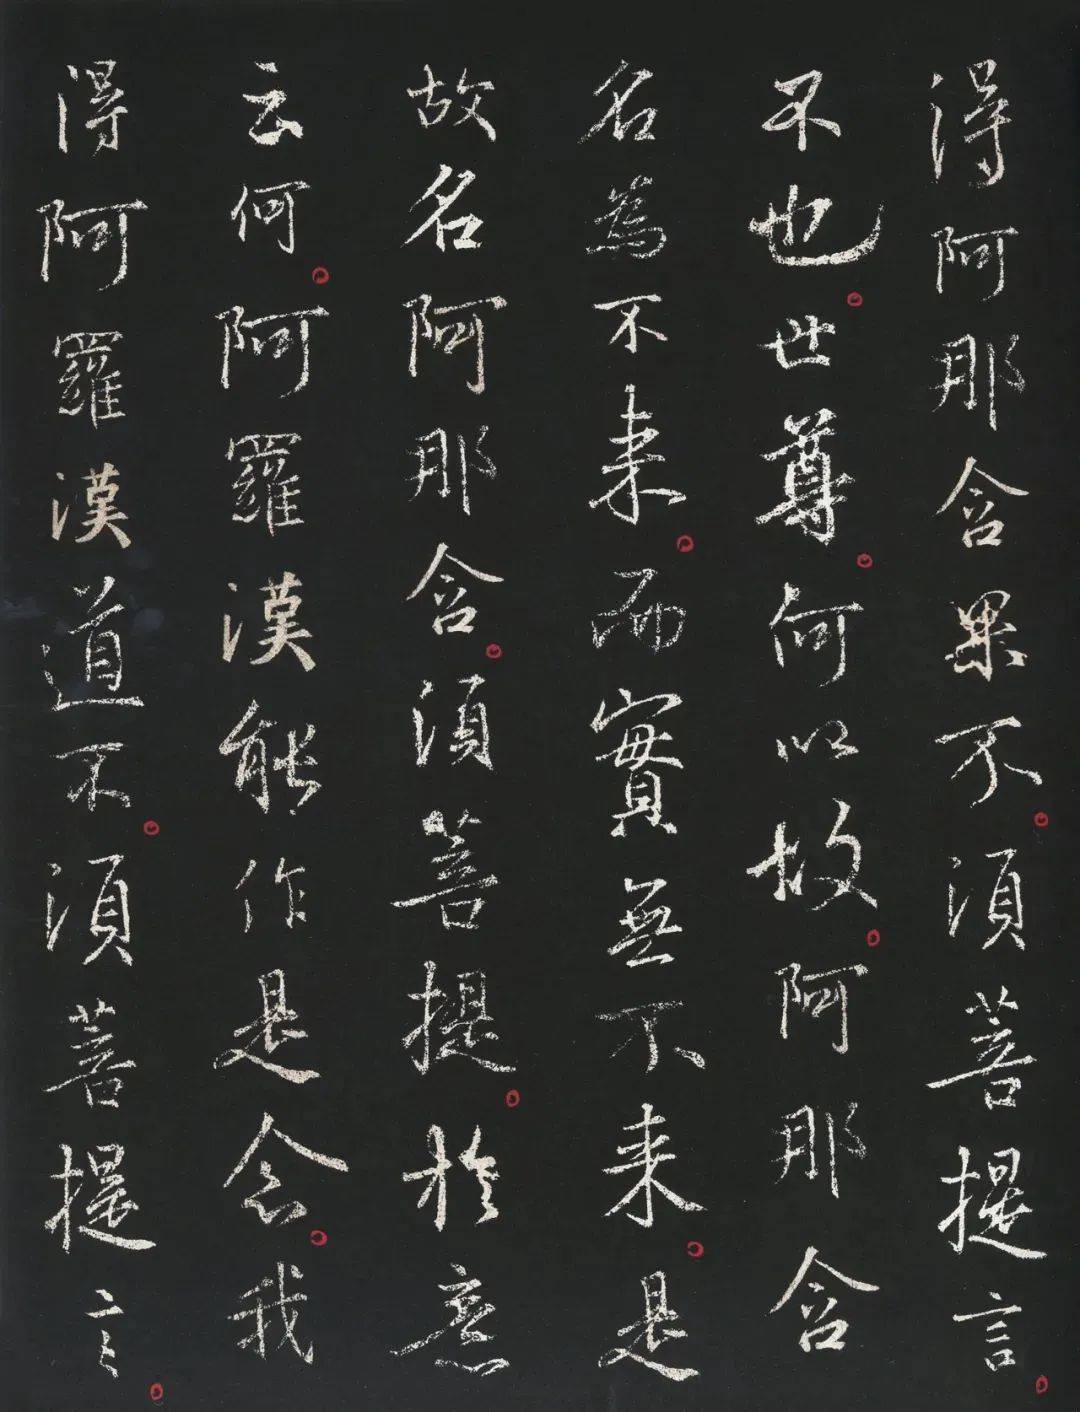 得阿那含果不。須菩提言。
不也。世尊。何以故。阿那含
名為不来。而實無不来。是
故名阿那含。須菩提。於意
云何。阿羅漢能作是念。我
得阿羅漢道不。須菩提言。